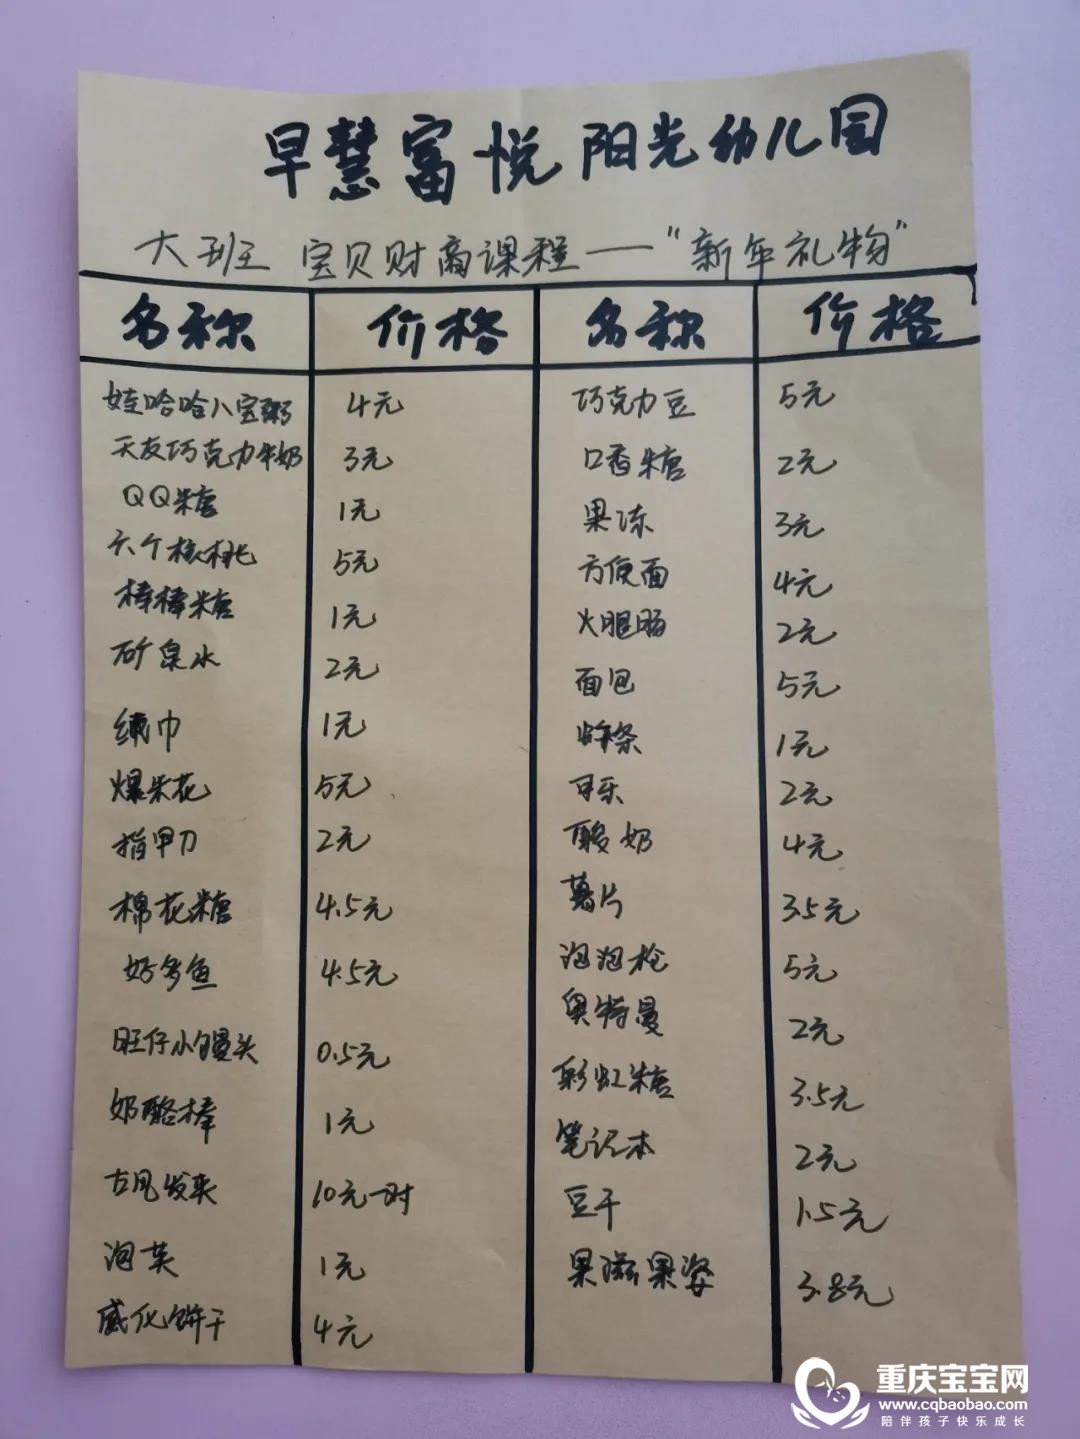 早慧富悦阳光幼儿园
大班 宝贝财商课程——“新年礼物”
名称 价格 名称 价格
娃哈哈八宝粥 4元 巧克力豆 5元
天友巧克力牛奶 3元 口香糖 2元
QQ糖 1元 果冻 3元
六个核桃 5元 方便面 4元
棒棒糖 1元 火腿肠 2元
矿泉水 2元 面包 5元
纸巾 1元 1元
爆米花 5元 可乐 2元
指甲刀 2元 酸奶 4元
棉花糖 4.5元 薯片 3.5元
好多鱼 4.5元 泡泡枪 5元
旺仔小馒头 0.5元 奥特曼 2元
奶酪棒 1元 彩虹糖 3.5元
古风发夹 10元一对 笔记本 2元
泡芙 1元 豆干 1.5元
威化饼干 4元 果滋果姿 3.8元
重庆宝宝网
www.cqbaobao.com
陪伴孩子快乐成长